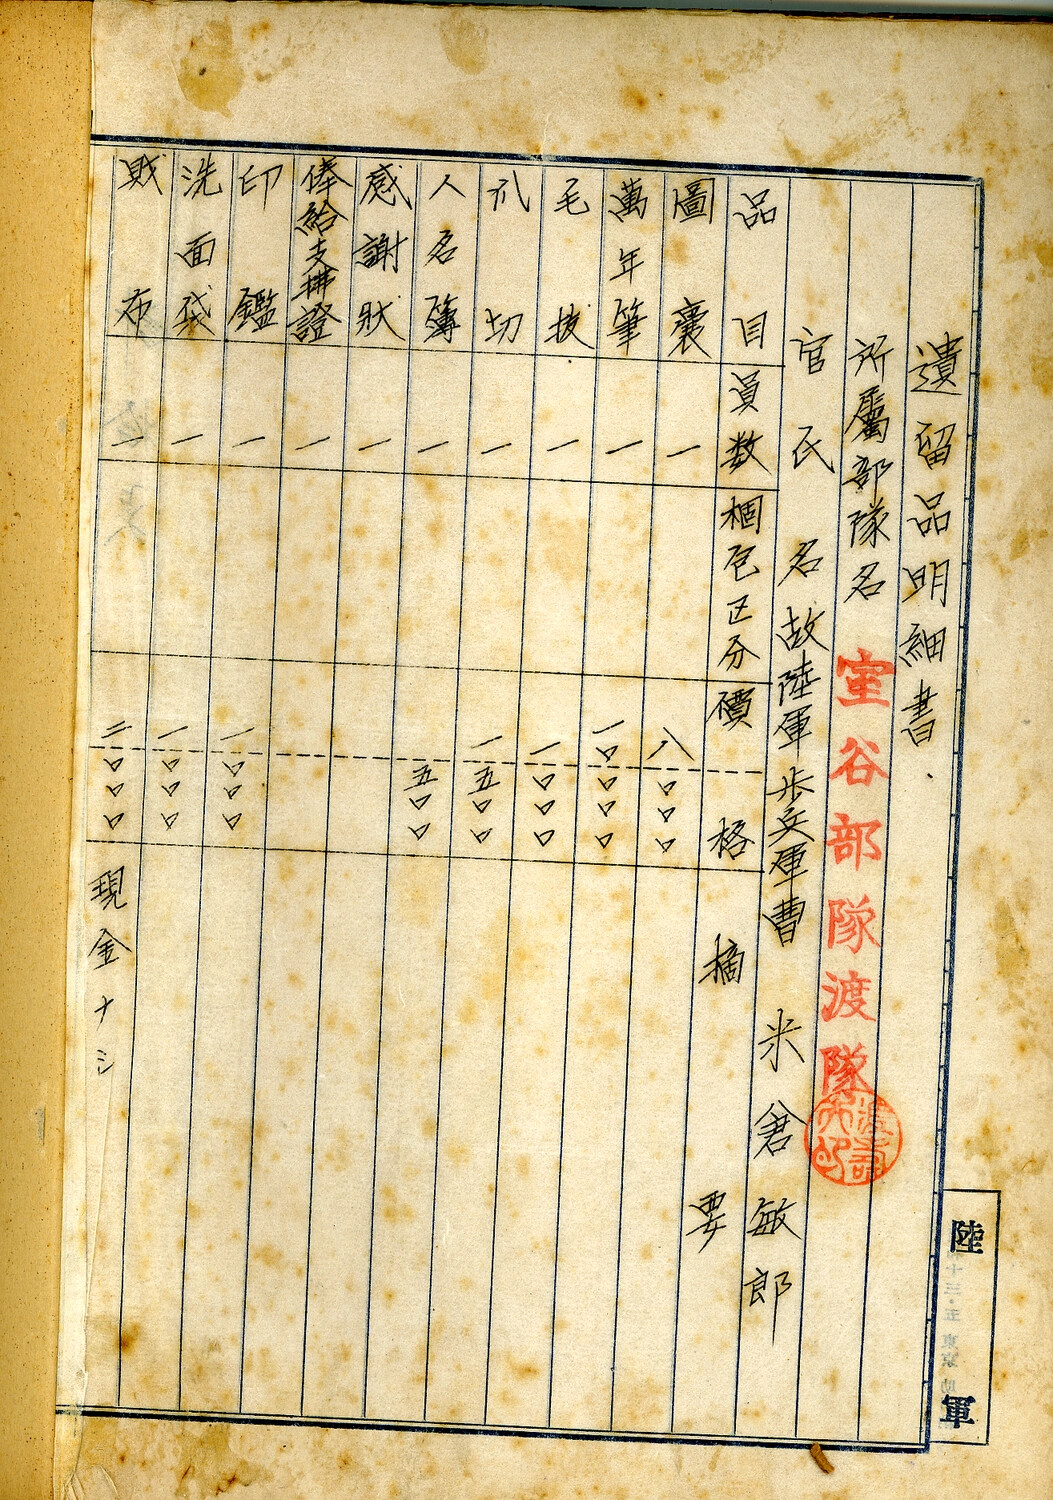 遺留品明細書
所屬部隊名 室谷部隊渡隊
官氏名 故陸軍歩兵軍曹 米倉敏郎
品目 員数 梱包区分 價格 摘要
圖嚢 一 八〇〇〇
萬年筆 一 一〇〇〇〇
毛抜 一 一〇〇〇
爪切 一 一五〇〇
人名簿 一 五〇〇
感謝状 一
俸給支拂證 一
印鑑 一 一〇〇〇
洗面袋 一 一〇〇〇
財布 一 二〇〇〇 現金ナシ
陸軍